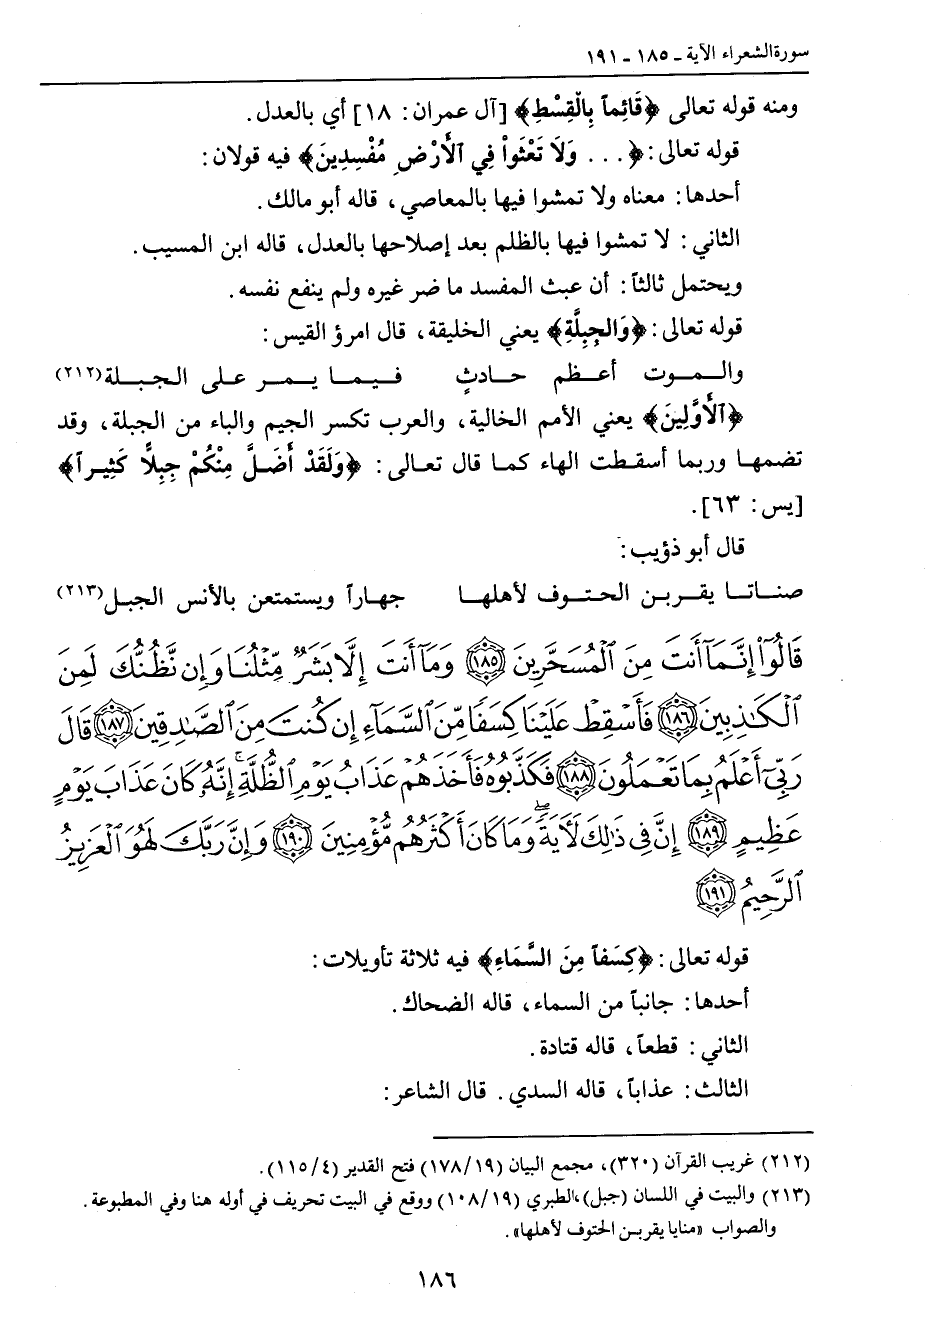 سورة الشعراء الآية ـ ١٨٥ ـ ١٩١
ومنه قوله تعالى ﴿قَائِماً بِالْقِسْطِ﴾ [آل عمران: ١٨] أي بالعدل.
قوله تعالى: ﴿... وَلَا تَعْثَوْاْ فِي ٱلْأَرْضِ مُفْسِدِينَ﴾ فيه قولان:
أحدها: معناه ولا تمشوا فيها بالمعاصي، قاله أبو مالك.
الثاني: لا تمشوا فيها بالظلم بعد إصلاحها بالعدل، قاله ابن المسيب.
ويحتمل ثالثاً: أن عبث المفسد ما ضر غيره ولم ينفع نفسه.
قوله تعالى: ﴿وَالجِبِلَّةِ﴾ يعني الخليقة، قال امرؤ القيس:
والموت أعظم حادثٍ فيما يمر على الجبلة(٢١٢)
﴿ٱلْأَوَّلِينَ﴾ يعني الأمم الخالية، والعرب تكسر الجيم والباء من الجبلة، وقد
تضمها وربما أسقطت الهاء كما قال تعالى: ﴿وَلَقَدْ أَضَلَّ مِنْكُمْ جِبِلاًّ كَثِيراً﴾
[يس: ٦٣].
قال أبو ذؤيب:
صناتا يقربن الحتوف لأهلها جهاراً ويستمتعن بالأنس الجبل(٢١٣)
قَالُوٓاْ إِنَّمَآ أَنتَ مِنَ ٱلْمُسَحَّرِينَ ١٨٥ وَمَآ أَنتَ إِلَّا بَشَرٌ مِّثْلُنَا وَإِن نَّظُنُّكَ لَمِنَ
ٱلْكَٰذِبِينَ ١٨٦ فَأَسْقِطْ عَلَيْنَا كِسَفًا مِّنَ ٱلسَّمَآءِ إِن كُنتَ مِنَ ٱلصَّٰدِقِينَ ١٨٧ قَالَ
رَبِّىٓ أَعْلَمُ بِمَا تَعْمَلُونَ ١٨٨ فَكَذَّبُوهُ فَأَخَذَهُمْ عَذَابُ يَوْمِ ٱلظُّلَّةِ ۚ إِنَّهُۥ كَانَ عَذَابَ يَوْمٍ
عَظِيمٍ ١٨٩ إِنَّ فِى ذَٰلِكَ لَءَايَةً ۖ وَمَا كَانَ أَكْثَرُهُم مُّؤْمِنِينَ ١٩٠ وَإِنَّ رَبَّكَ لَهُوَ ٱلْعَزِيزُ
ٱلرَّحِيمُ ١٩١
قوله تعالى: ﴿كِسَفاً مِنَ السَّمَاءِ﴾ فيه ثلاثة تأويلات:
أحدها: جانباً من السماء، قاله الضحاك.
الثاني: قطعاً، قاله قتادة.
الثالث: عذاباً، قاله السدي. قال الشاعر:
(٢١٢) غريب القرآن (٣٢٠)، مجمع البيان (١٧٨/١٩) فتح القدير (١١٥/٤).
(٢١٣) والبيت في اللسان (جبل)، الطبري (١٠٨/١٩) ووقع في البيت تحريف في أوله هنا وفي المطبوعة.
والصواب «منايا يقربن الحتوف لأهلها».
١٨٦